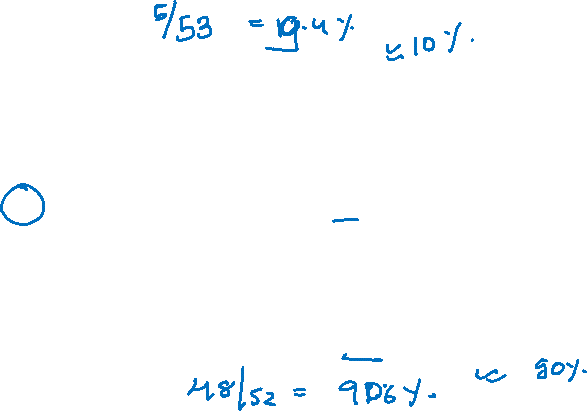 5/53 = 9.4% ≈ 10%.
48/52 = 90.6%. ≈ 90%.